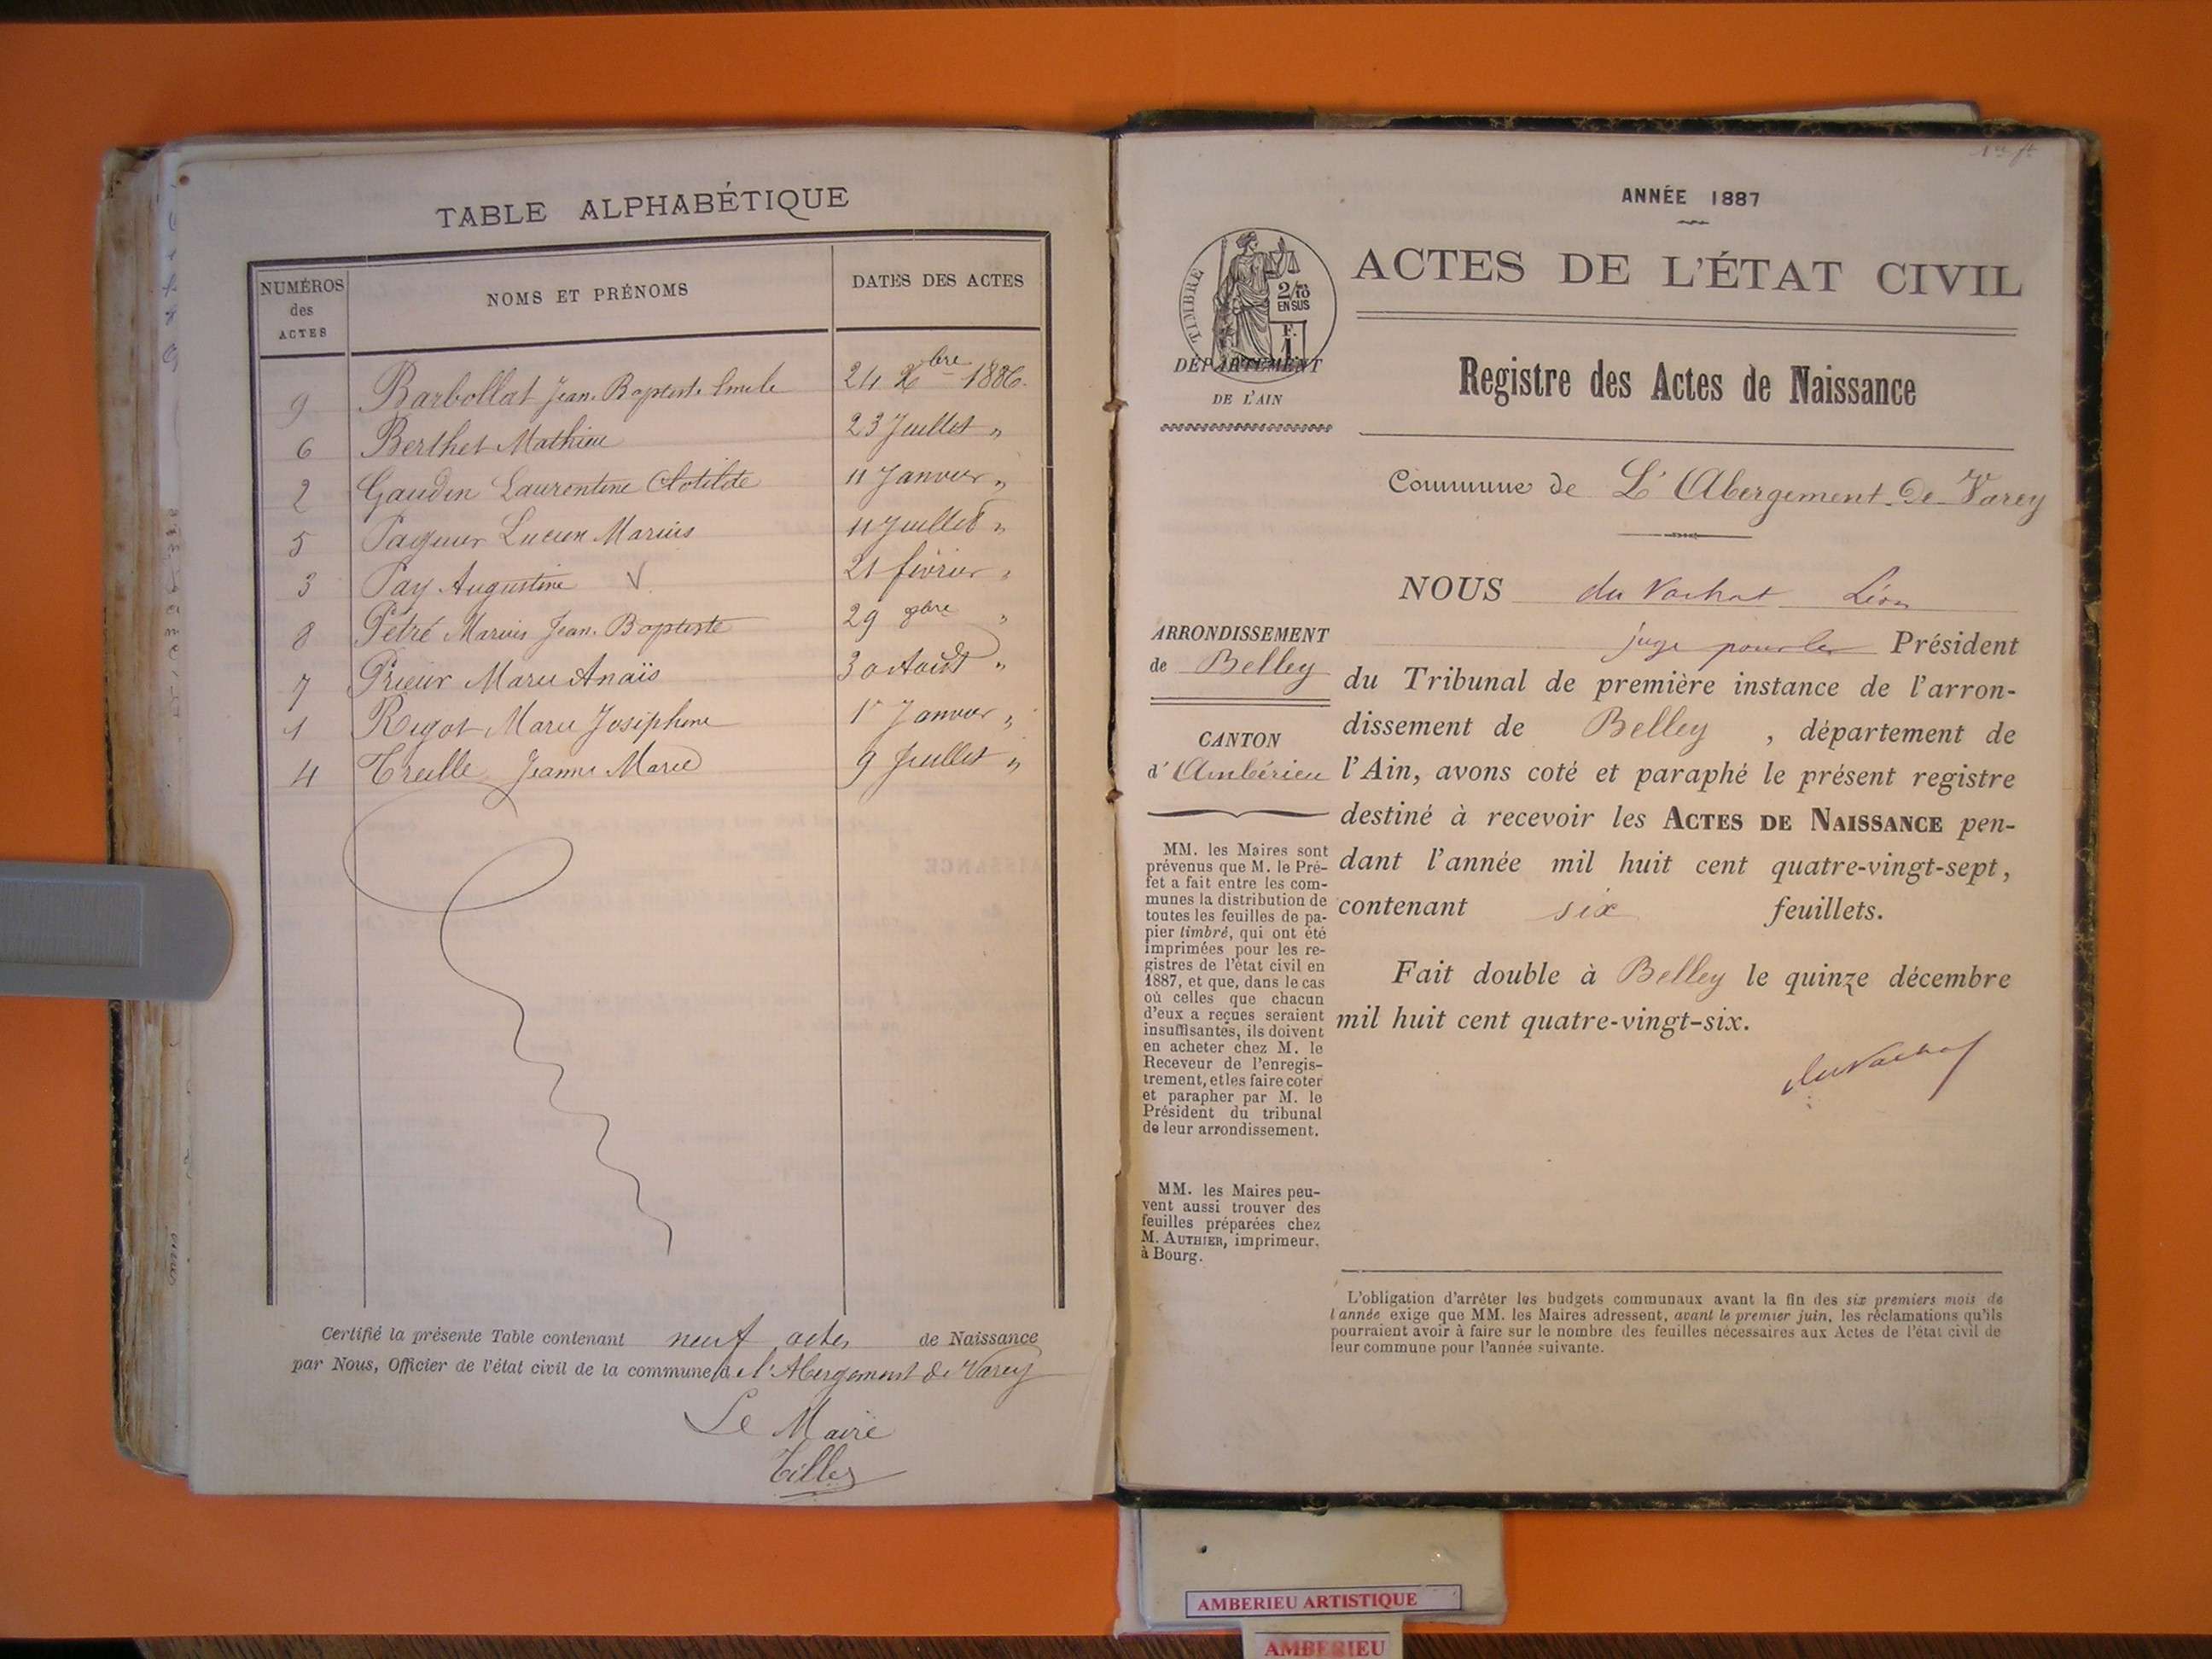 TABLE ALPHABÉTIQUE
NUMÉROS des ACTES
NOMS ET PRÉNOMS
DATES DES ACTES
9 Barbollat Jean Baptiste Emile 24 Xbre 1886.
6 Berthet Mathieu 23 Juillet "
2 Gaudin Laurentine Clotilde 11 Janvier "
5 Paquier Lucien Marius 11 Juillet "
3 Pay Augustine V 21 février "
8 Pétré Marius Jean Baptiste 29 9bre "
7 Prieur Marie Anaïs 30 Août "
1 Rigot Marie Joséphine 1r Janvier "
4 Treille Jeanne Marie 9 Juillet "
Certifié la présente Table contenant neuf actes de Naissance
par Nous, Officier de l'état civil de la commune de l'Abergement de Varey
Le Maire
Tiller
ANNÉE 1887
TIMBRE
2/10
EN SUS
F.
1
ACTES DE L'ÉTAT CIVIL
DÉPARTEMENT
DE L'AIN
Registre des Actes de Naissance
Commune de L'Abergement-de-Varey
NOUS du Vachat Léon
juge pour le Président
ARRONDISSEMENT
de Belley
du Tribunal de première instance de l'arron-
dissement de Belley, département de
CANTON
d'Ambérieu
l'Ain, avons coté et paraphé le présent registre
destiné à recevoir les ACTES DE NAISSANCE pen-
dant l'année mil huit cent quatre-vingt-sept,
contenant six feuillets.
Fait double à Belley le quinze décembre
mil huit cent quatre-vingt-six.
du Vachat
MM. les Maires sont
prévenus que M. le Pré-
fet a fait entre les com-
munes la distribution de
toutes les feuilles de pa-
pier timbré, qui ont été
imprimées pour les re-
gistres de l'état civil en
1887, et que, dans le cas
où celles que chacun
d'eux a reçues seraient
insuffisantes, ils doivent
en acheter chez M. le
Receveur de l'enregis-
trement, et les faire coter
et parapher par M. le
Président du tribunal
de leur arrondissement.
MM. les Maires peu-
vent aussi trouver des
feuilles préparées chez
M. AUTHIER, imprimeur,
à Bourg.
L'obligation d'arrêter les budgets communaux avant la fin des six premiers mois de
l'année exige que MM. les Maires adressent, avant le premier juin, les réclamations qu'ils
pourraient avoir à faire sur le nombre des feuilles nécessaires aux Actes de l'état civil de
leur commune pour l'année suivante.
AMBERIEU ARTISTIQUE
AMBERIEU